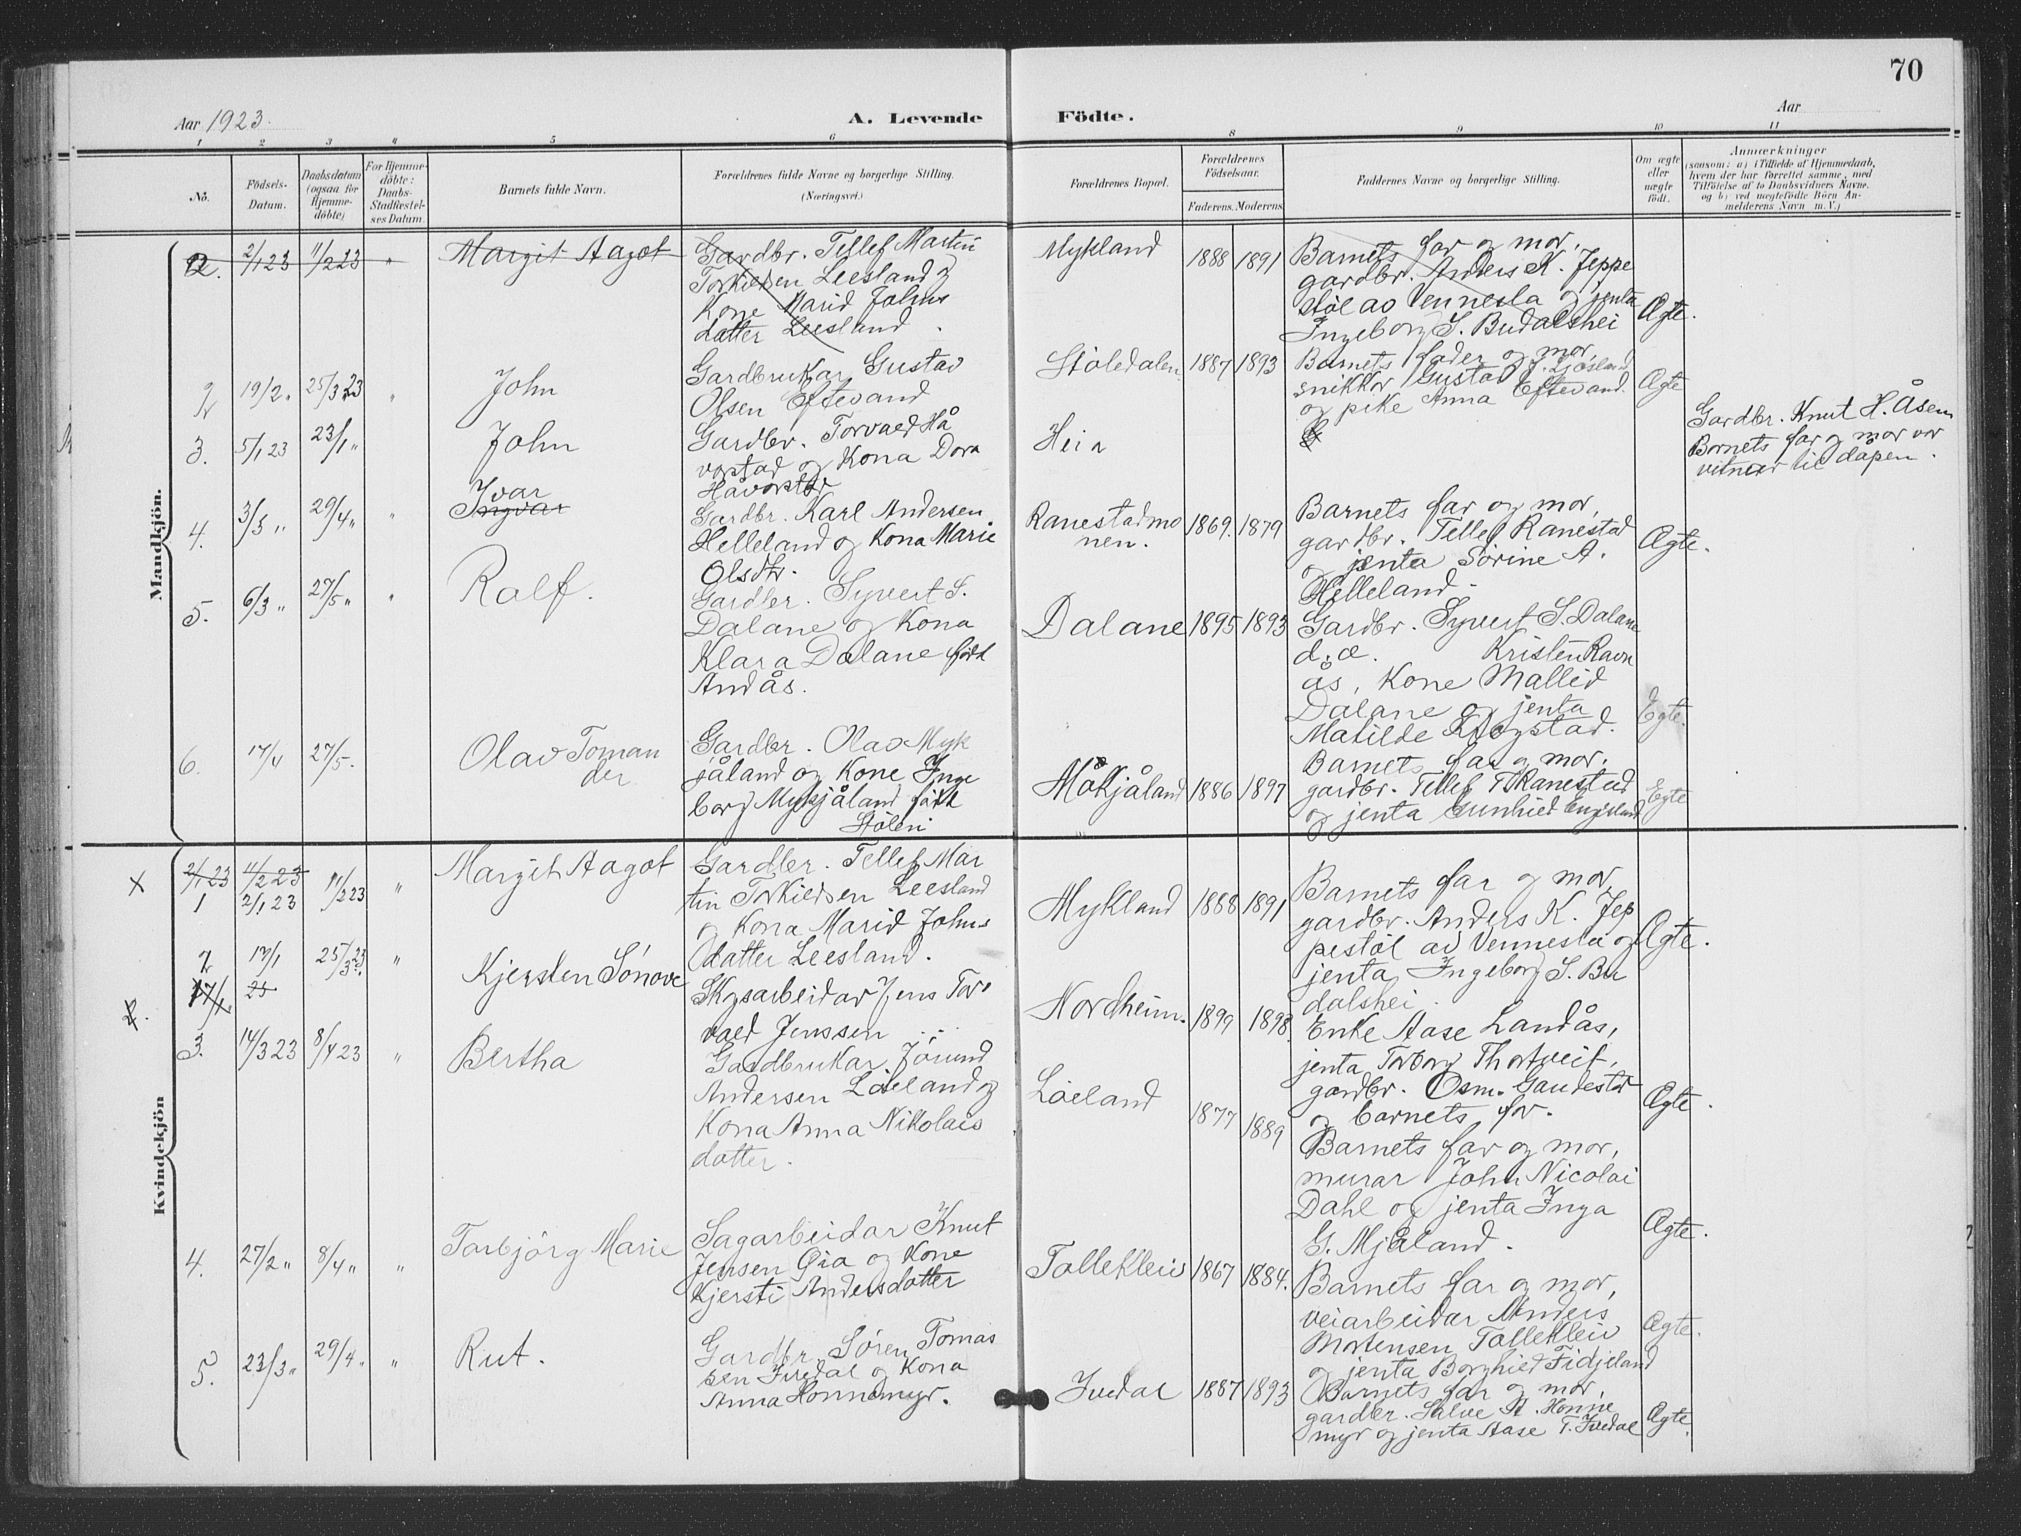 70
Aar 1923. A. Levende Födte. Aar
1 2 3 4 5 6 8 9 10 11
No.
Födsels-
Datum.
Daabsdatum
(ogsaa for
Hjemme-
döbte)
For Hjemme-
döbte:
Daabs-
Stadfæstel-
ses Datum.
Barnets fulde Navn.
Forældrenes fulde Navne og borgerlige Stilling.
(Næringsvei.)
Forældrenes Bopæl.
Forældrenes
Födselsaar.
Faderens. Moderens.
Faddernes Navne og borgerlige Stilling.
Om ægte
eller
uægte
födt.
Anmærkninger
(saasom: a) i Tilfælde af Hjemmedaab,
hvem der har forrettet samme, med
Tilföielse af to Daabsvidners Navne.
og b) ved uægtefödte Börn An-
melderens Navn m. V.)
Mandkjön.
2/1 23 11/2 23 " Margit Aagot
Gardbr. Tellef Martin
Torkildsen Leesland og
Kone Marid Johns
datter Leesland.
Mykland 1888 1891
Barnets far og mor,
gardbr. Anders K. Jeppe
støl av Vennesla og jenta
Ingeborg S. Budalshei
Ægte.
2 19/2 " 25/3 23 " John
Gardbrukar Gustav
Olsen Eftevand
Støledalen 1887 1893
Barnets fader og mor,
snikkar Gustav J. Ljosland
og pike Anna Eftevand.
Ægte
3. 5/1 23 23/1 " John
Gardbr. Torvald Hå
vorstad og Kona Dora
Håvorstad
Heia
Gardbr. Knut H. Åsen
Barnets far og mor var
vitner til dåpen.
4. 3/3 " 29/4 " " Ivar
Ingvar
Gardbr. Karl Andersen
Helleland og Kona Marie
Olsdtr.
Ranestadmo
nen. 1869. 1879
Barnets far og mor,
gardbr. Tellef Ranestad
og jenta Sørine A.
Helleland.
Ægte.
5. 6/3 " 27/5 " " Ralf.
Gardbr. Syvert S.
Dalane og Kona
Klara Dalane født
Andås.
Dalane 1895 1893
Gardbr. Syvert S. Dalane
d.æ. Kristen Ravn
ås, Kone Mallid
Dalane og jenta
Matilde Røystad.
Egte.
6. 17/4 27/5. Olav Toman
der
Gardbr. Olav Myk
jåland og Kone Inge
borg Mykjåland født
Stølen
Måkjåland 1886 1897
Barnets far og mor,
gardbr. Tellef T. Ranestad
og jenta Gunhild Engesland
Egte
Kvindekjön
x 2/1 23 11/2 23
1 2/1 23 11/2 23 " Margit Aagot
Gardbr. Tellef Mar
tin Torkildsen Leesland
og Kona Marid Johns
datter Leesland.
Mykland 1888 1891
Barnets far og mor,
gardbr. Anders K. Jep
pestøl av Vennesla og
jenta Ingeborg S. Bu
dalshei.
Ægte.
2 25/3 23 " Kjersten Sønove
Skogsarbeidar Jens Tor
vald Jenssen ...
Nordheim. 1899 1898.
Enke Aase Landås,
jenta Torborg Thortveit,
gardbr. Osm. Gaudestad
og barnets far.
Ægte.
3. 14/3 23 8/4 23 " Bertha
Gardbrukar Jørund
Andersen Løeland og
Kona Anna Nikolais
datter.
Løeland 1877 1889
Barnets far og mor,
murar John Nicolai
Dahl og jenta Inga
G. Mjåland.
Ægte.
4. 27/2 " 8/4 " " Torbjörg Marie
Sagarbeidar Knut
Jensen Øia og Kone
Kjersti Andersdatter
Tollekleiv 1867 1884.
Barnets far og mor,
veiarbeidar Anders
Mortensen Tolleklei
og jenta Borghild Fidjeland
Ægte.
5. 23/3 " 29/4 " " Rut.
Gardbr. Søren Tomas
sen Ivedal og Kona
Anna Honnemyr.
Ivedal 1887 1893
Barnets far og mor,
gardbr. Salve A. Honne
myr og jenta Aase T. Ivedal
Ægte.